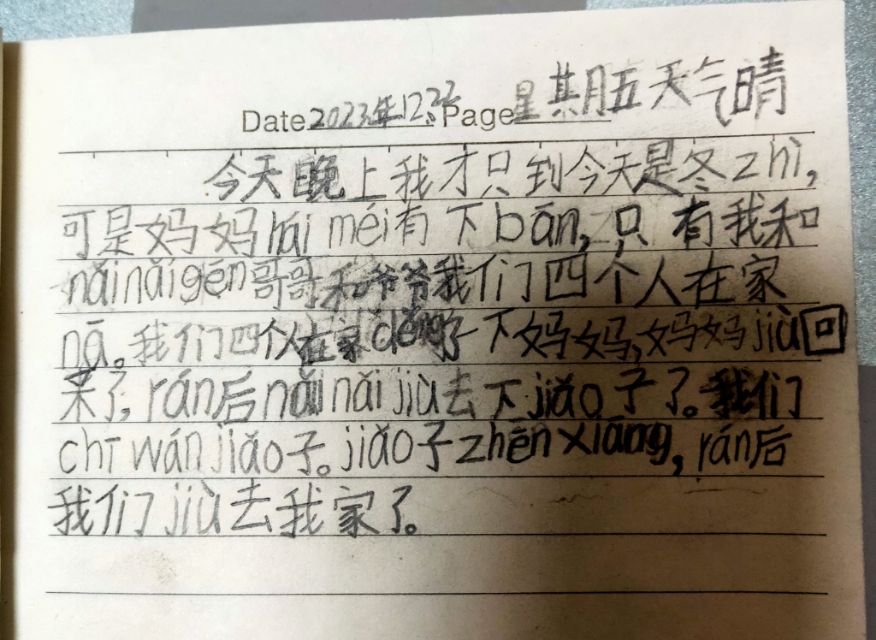 Date 2023年12.22 Page 星期五天气晴
今天晚上我才只到今天是冬zhì,
可是妈妈hái méi有下bān,只有我和
nǎinǎigēn哥哥和爷爷我们四个人在家
nā。我们四个人在家děng了一下妈妈,妈妈jiù回
来了,rán后nǎinǎijiù去下jiǎo子了。我们
chī wán jiǎo子。jiǎo子zhēn xiāng,rán后
我们jiù去我家了。